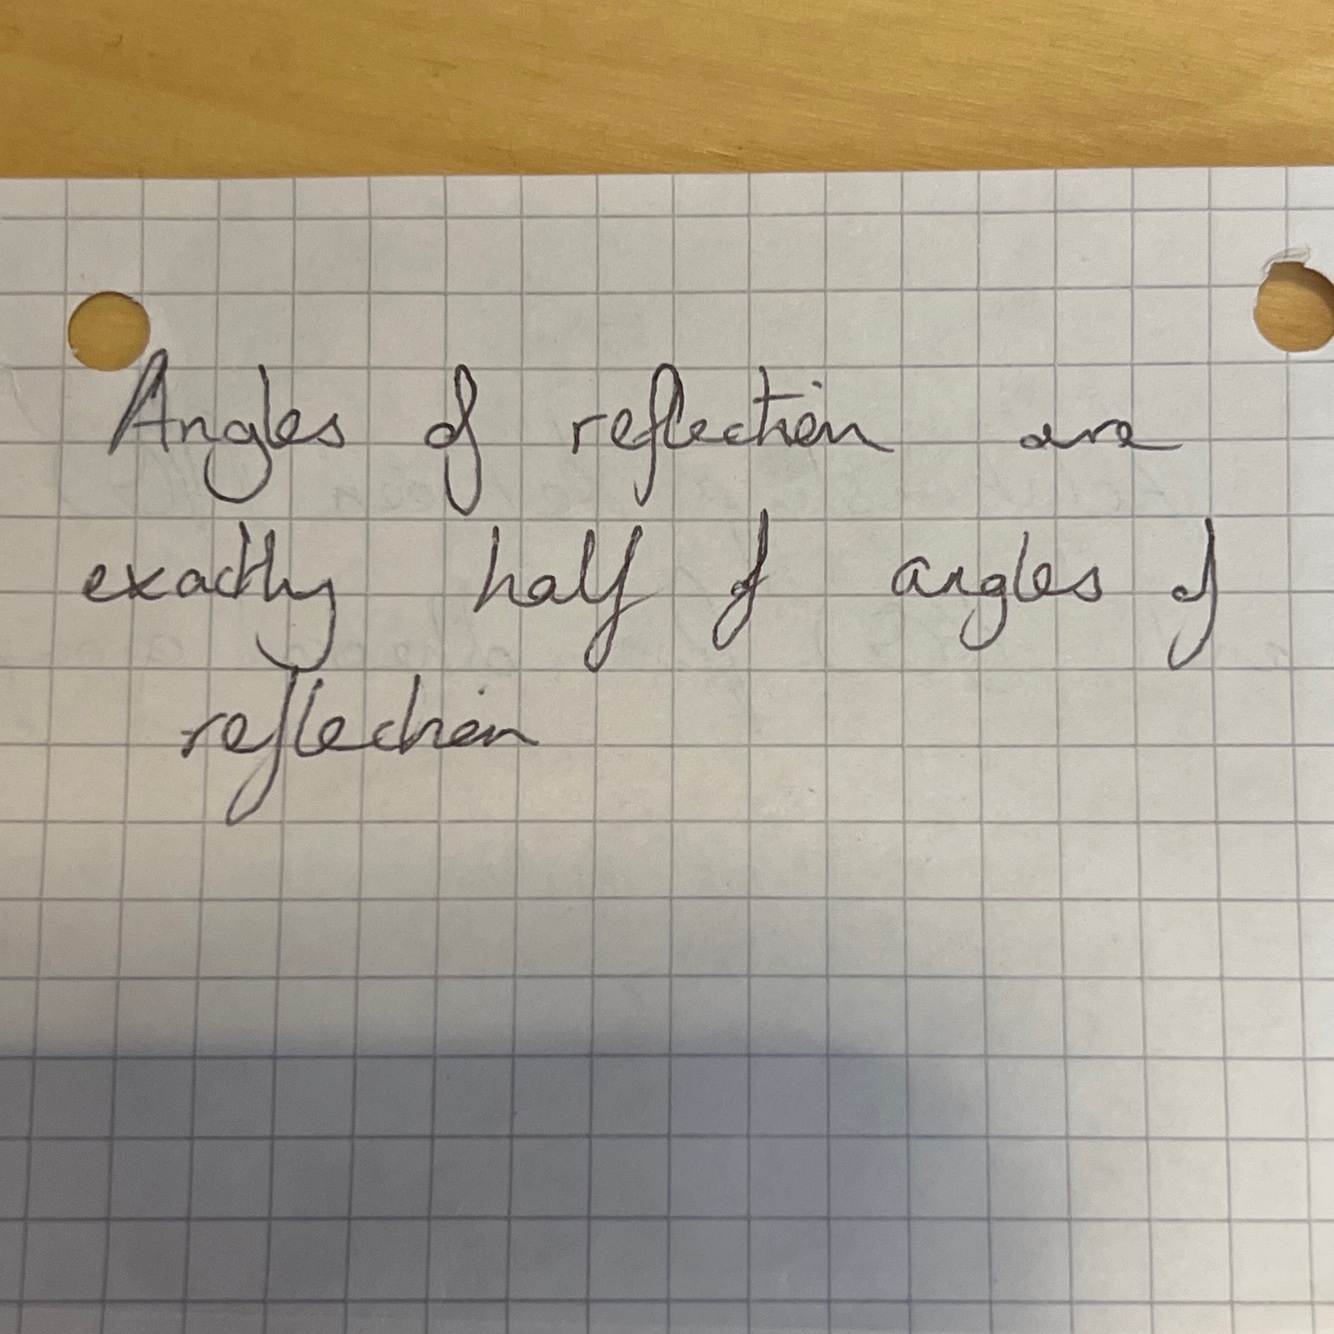 Angles of reflection are
exactly half of angles of
reflection